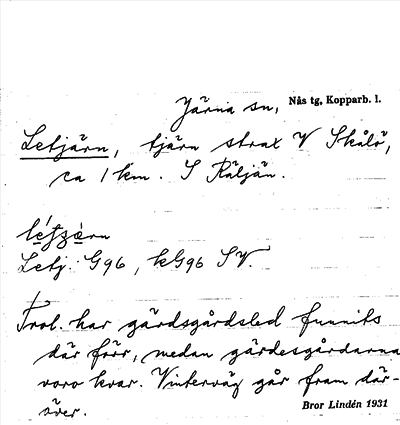 Järna sn, Nås tg, Kopparb. l.
Letjärn, tjärn strax V Skålö,
ca 1 km. S Räljän.
Letj. G96, kG96 SV.
Trol. har gärdsgårdsled funnits
där förr, medan gärdesgårdarna
voro kvar. Vinterväg går fram där-
över. Bror Lindén 1931